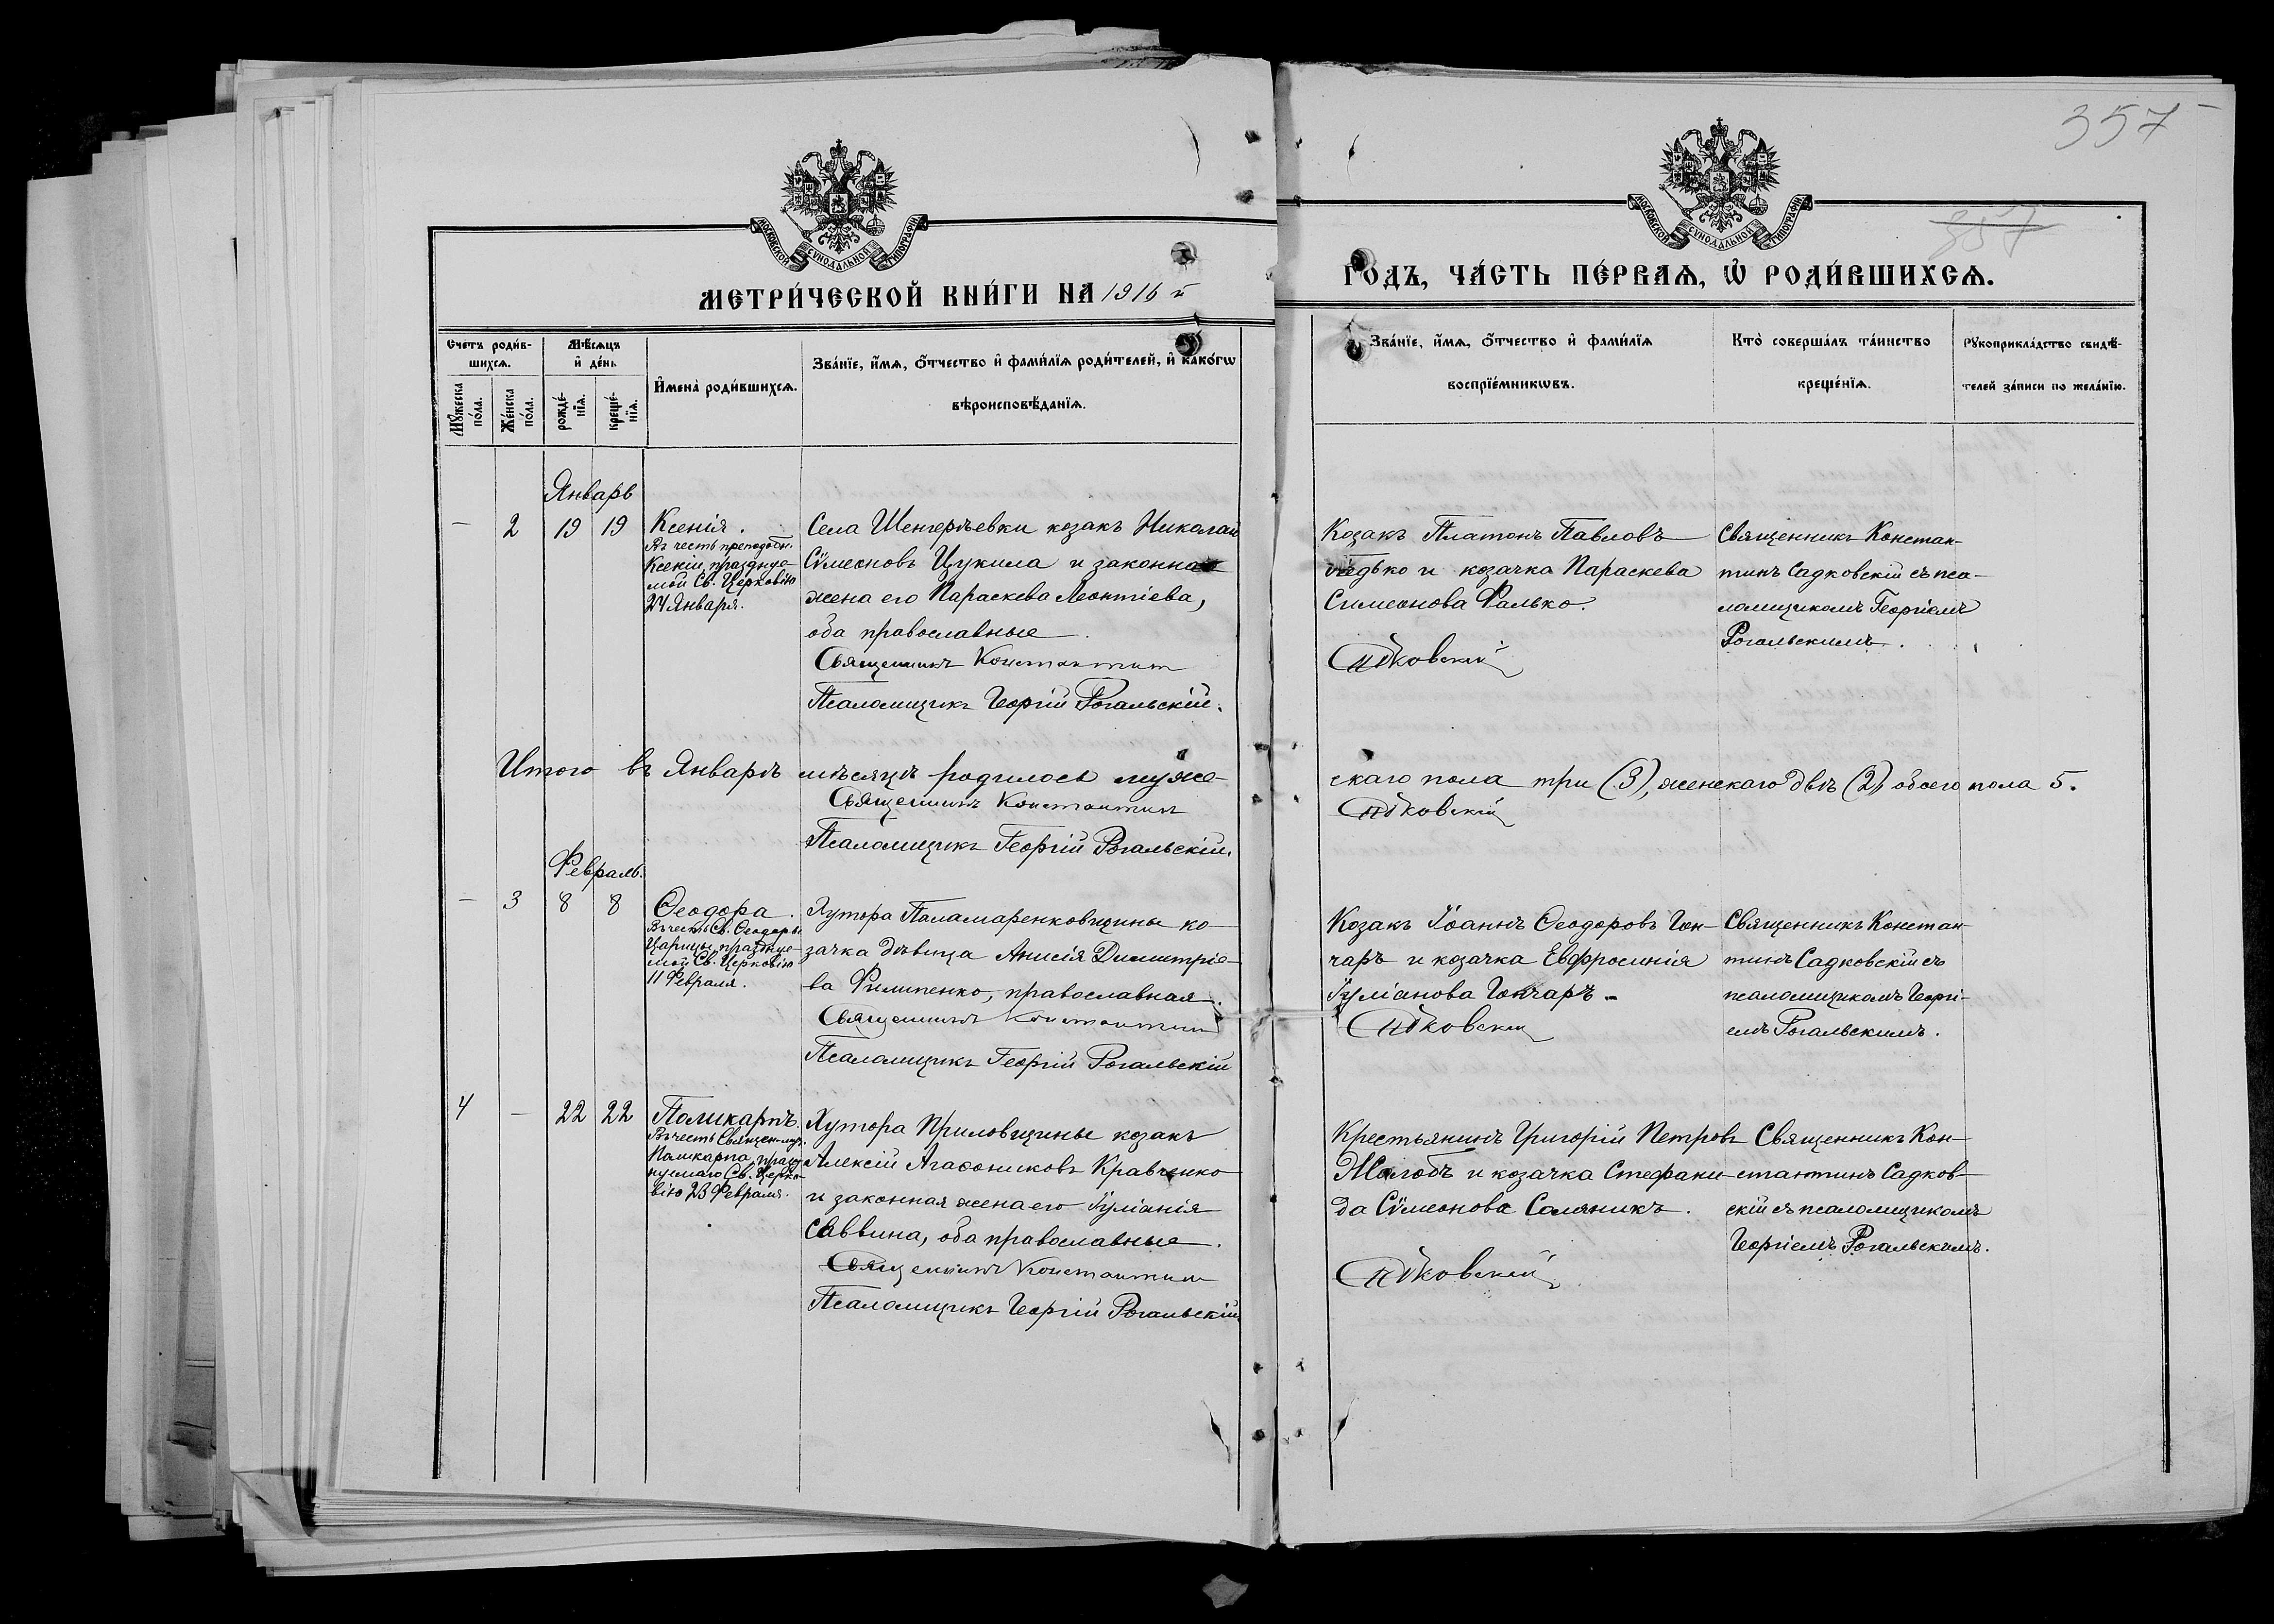 357
357
МОСКОВСКОЙ СУНОДАЛЬНОЙ ТИПОГРАФІИ
МОСКОВСКОЙ СУНОДАЛЬНОЙ ТИПОГРАФІИ
МЕТРИ́ЧЕСКОЙ КНИ́ГИ НА 1916 й
ГОДЪ, ЧА́СТЬ ПЕ́РВАѦ, Ѽ РОДИ́ВШИХСѦ.
Счетъ роди́в-
шихсѧ.
Мꙋжеска по́ла.
Же́нска по́ла.
Мѣ́сѧцъ
и҆ де́нь
рожде́-
нїѧ.
креще́-
нїѧ.
И҆мена̀ роди́вшихсѧ.
Зва́нїе, и҆́мѧ, ѻ҆́тчество и҆ фами́лїѧ роди́телей, и҆ како́гѡ
вѣроисповѣ́данїѧ.
Зва́нїе, и҆́мѧ, ѻ҆́тчество и҆ фами́лїѧ
воспрїе́мникѡвъ.
Кто̀ соверша́лъ та́инство
креще́нїѧ.
Рꙋкоприкла́дство свидѣ́-
телей за́писи по жела́нїю.
Январь
— 2 19 19
Ксенія.
Въ честь преподобн.
Ксеніи, праздну̀е-
мой Св. Церковію
24 Января.
Села Шенгерѣевки козакъ Николай
Сѵмеоновъ Цукила и законная
жена его Параскева Леонтіева,
оба православные
Священникъ Константин
Псаломщикъ Георгій Рогальскій.
Козакъ Платонъ Павловъ
и козачка Параскева
Симеонова Фалько.
Садковскій
Священникъ Констан-
тинъ Садковскій съ пса-
ломщикомъ Георгіемъ
Рогальскимъ.
Итого въ Январѣ мѣсяцѣ родилось муже-
скаго пола три (3), женскаго двѣ (2), обоего пола 5.
Священникъ Константин
Садковскій
Псаломщикъ Георгій Рогальскій.
Февраль.
— 3 8 8
Ѳеодора.
Въ честь Св. Ѳеодоры
Царицы, праздну̀е-
мой Св. Церковію
11 Февраля.
Хутора Паламаренковщины ко-
зачка дѣвица Анисія Димитріе-
ва Филипенко, православная.
Священникъ Константин
Псаломщикъ Георгій Рогальскій
Козакъ Іоаннъ Ѳеодоровъ Гон-
чаръ и козачка Евфросинія
Іуліанова Гончаръ.
Садковскій
Священникъ Констан-
тинъ Садковскій съ
псаломщикомъ Георгі-
емъ Рогальскимъ.
4 — 22 22
Поликарпъ.
Въ честь Священ-муч.
Поликарпа, празд-
нуемаго Св. Церко-
вію 23 Февраля.
Хутора Приловщины козакъ
Алексій Агаѳониковъ Кравченко
и законная жена его Іуліанія
Саввина, оба православные.
Священникъ Константин
Псаломщикъ Георгій Рогальскій
Крестьянинъ Григорій Петровъ
Жолобъ и козачка Стефани-
да Сѵмеонова Соляникъ.
Садковскій
Священникъ Кон-
стантинъ Садков-
скій съ псаломщикомъ
Георгіемъ Рогальскимъ.